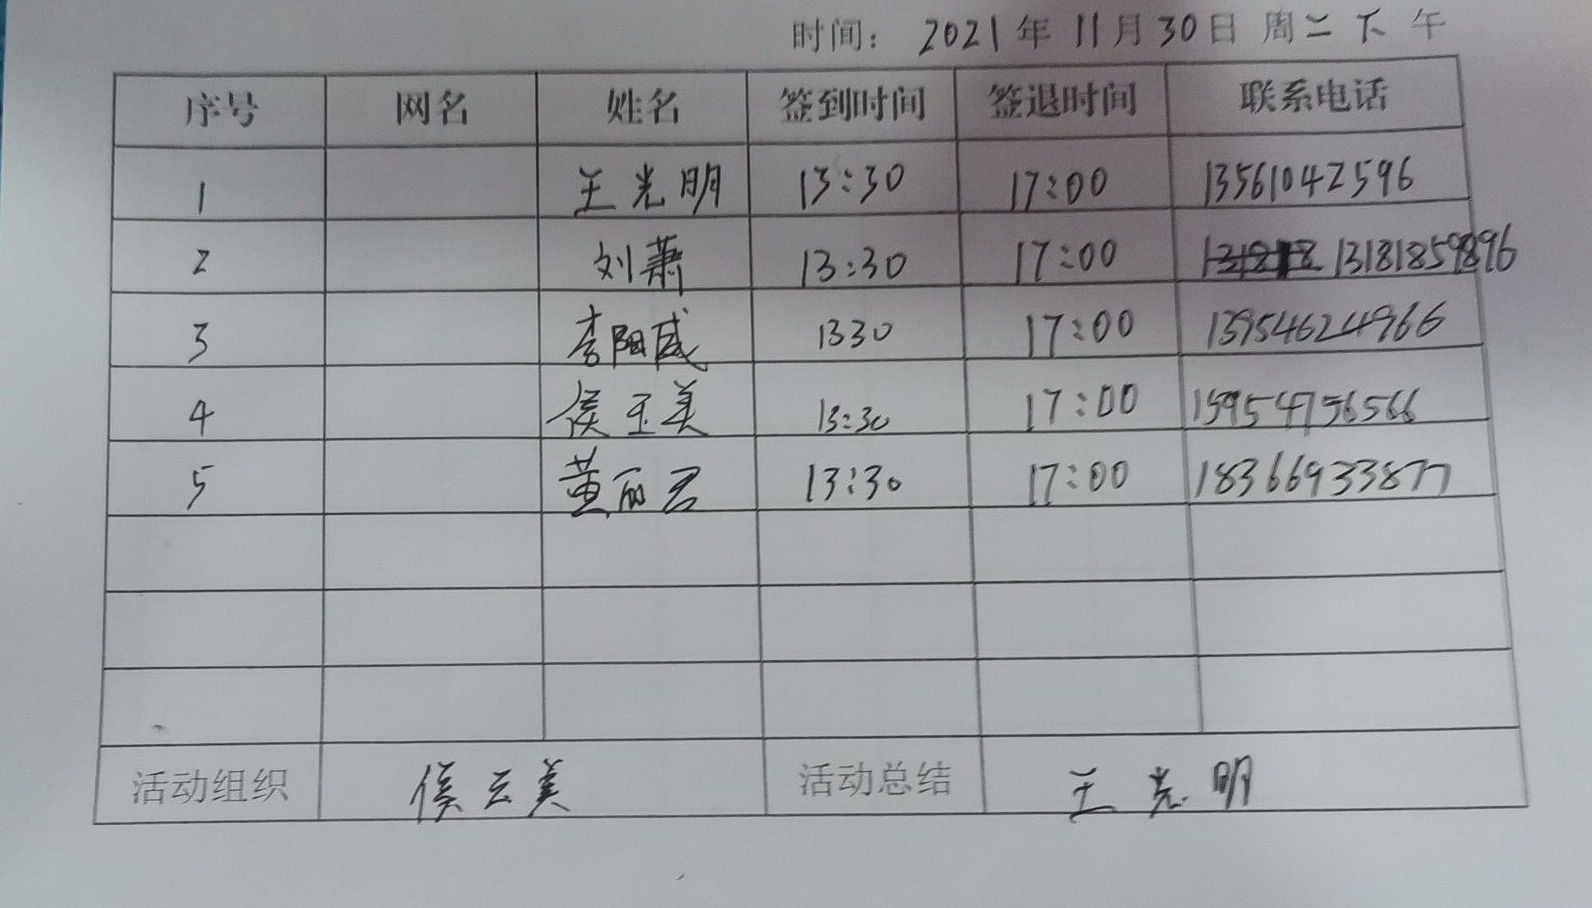 时间： 2021年11月30日 周二下午
序号 网名 姓名 签到时间 签退时间 联系电话
1 王光明 13:30 17:00 13561042596
2 刘萧 13:30 17:00 13181859896
3 李阳威 1330 17:00 13954624966
4 侯玉美 13:30 17:00 15954756566
5 黄丽君 13:30 17:00 18366933877
活动组织 侯云美 活动总结 王光明